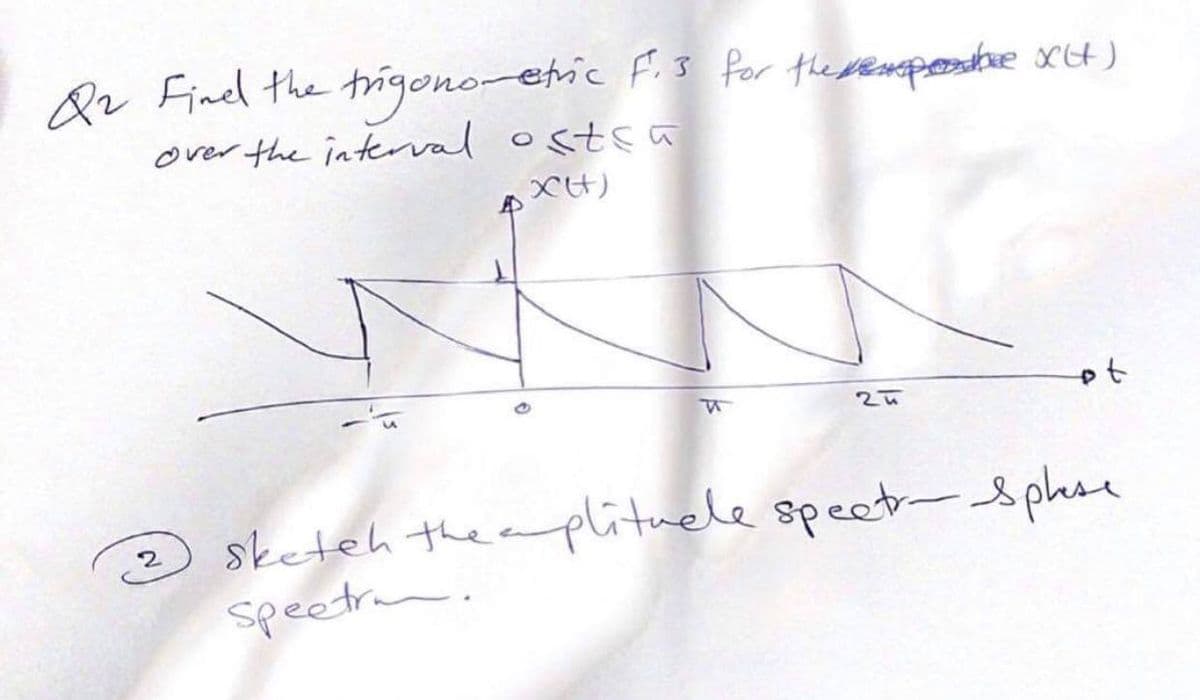 Q2 Find the trigonometric F.S for the x(t)
over the interval 0≤t≤π
x(t)
1
-π 0 π 2π t
② sketch the amplitude spectrum & phase
spectrum.